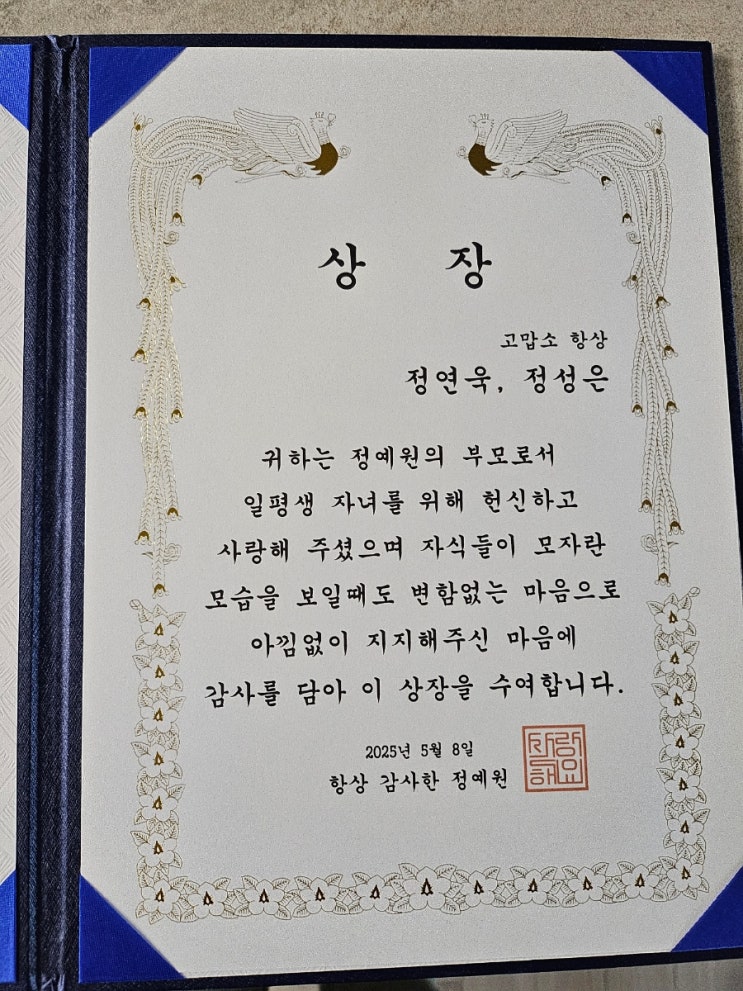 상 장
고맙소 항상
정연욱, 정성은
귀하는 정예원의 부모로서
일평생 자녀를 위해 헌신하고
사랑해 주셨으며 자식들이 모자란
모습을 보일때도 변함없는 마음으로
아낌없이 지지해주신 마음에
감사를 담아 이 상장을 수여합니다.
2025년 5월 8일
항상 감사한 정예원
사랑
해요